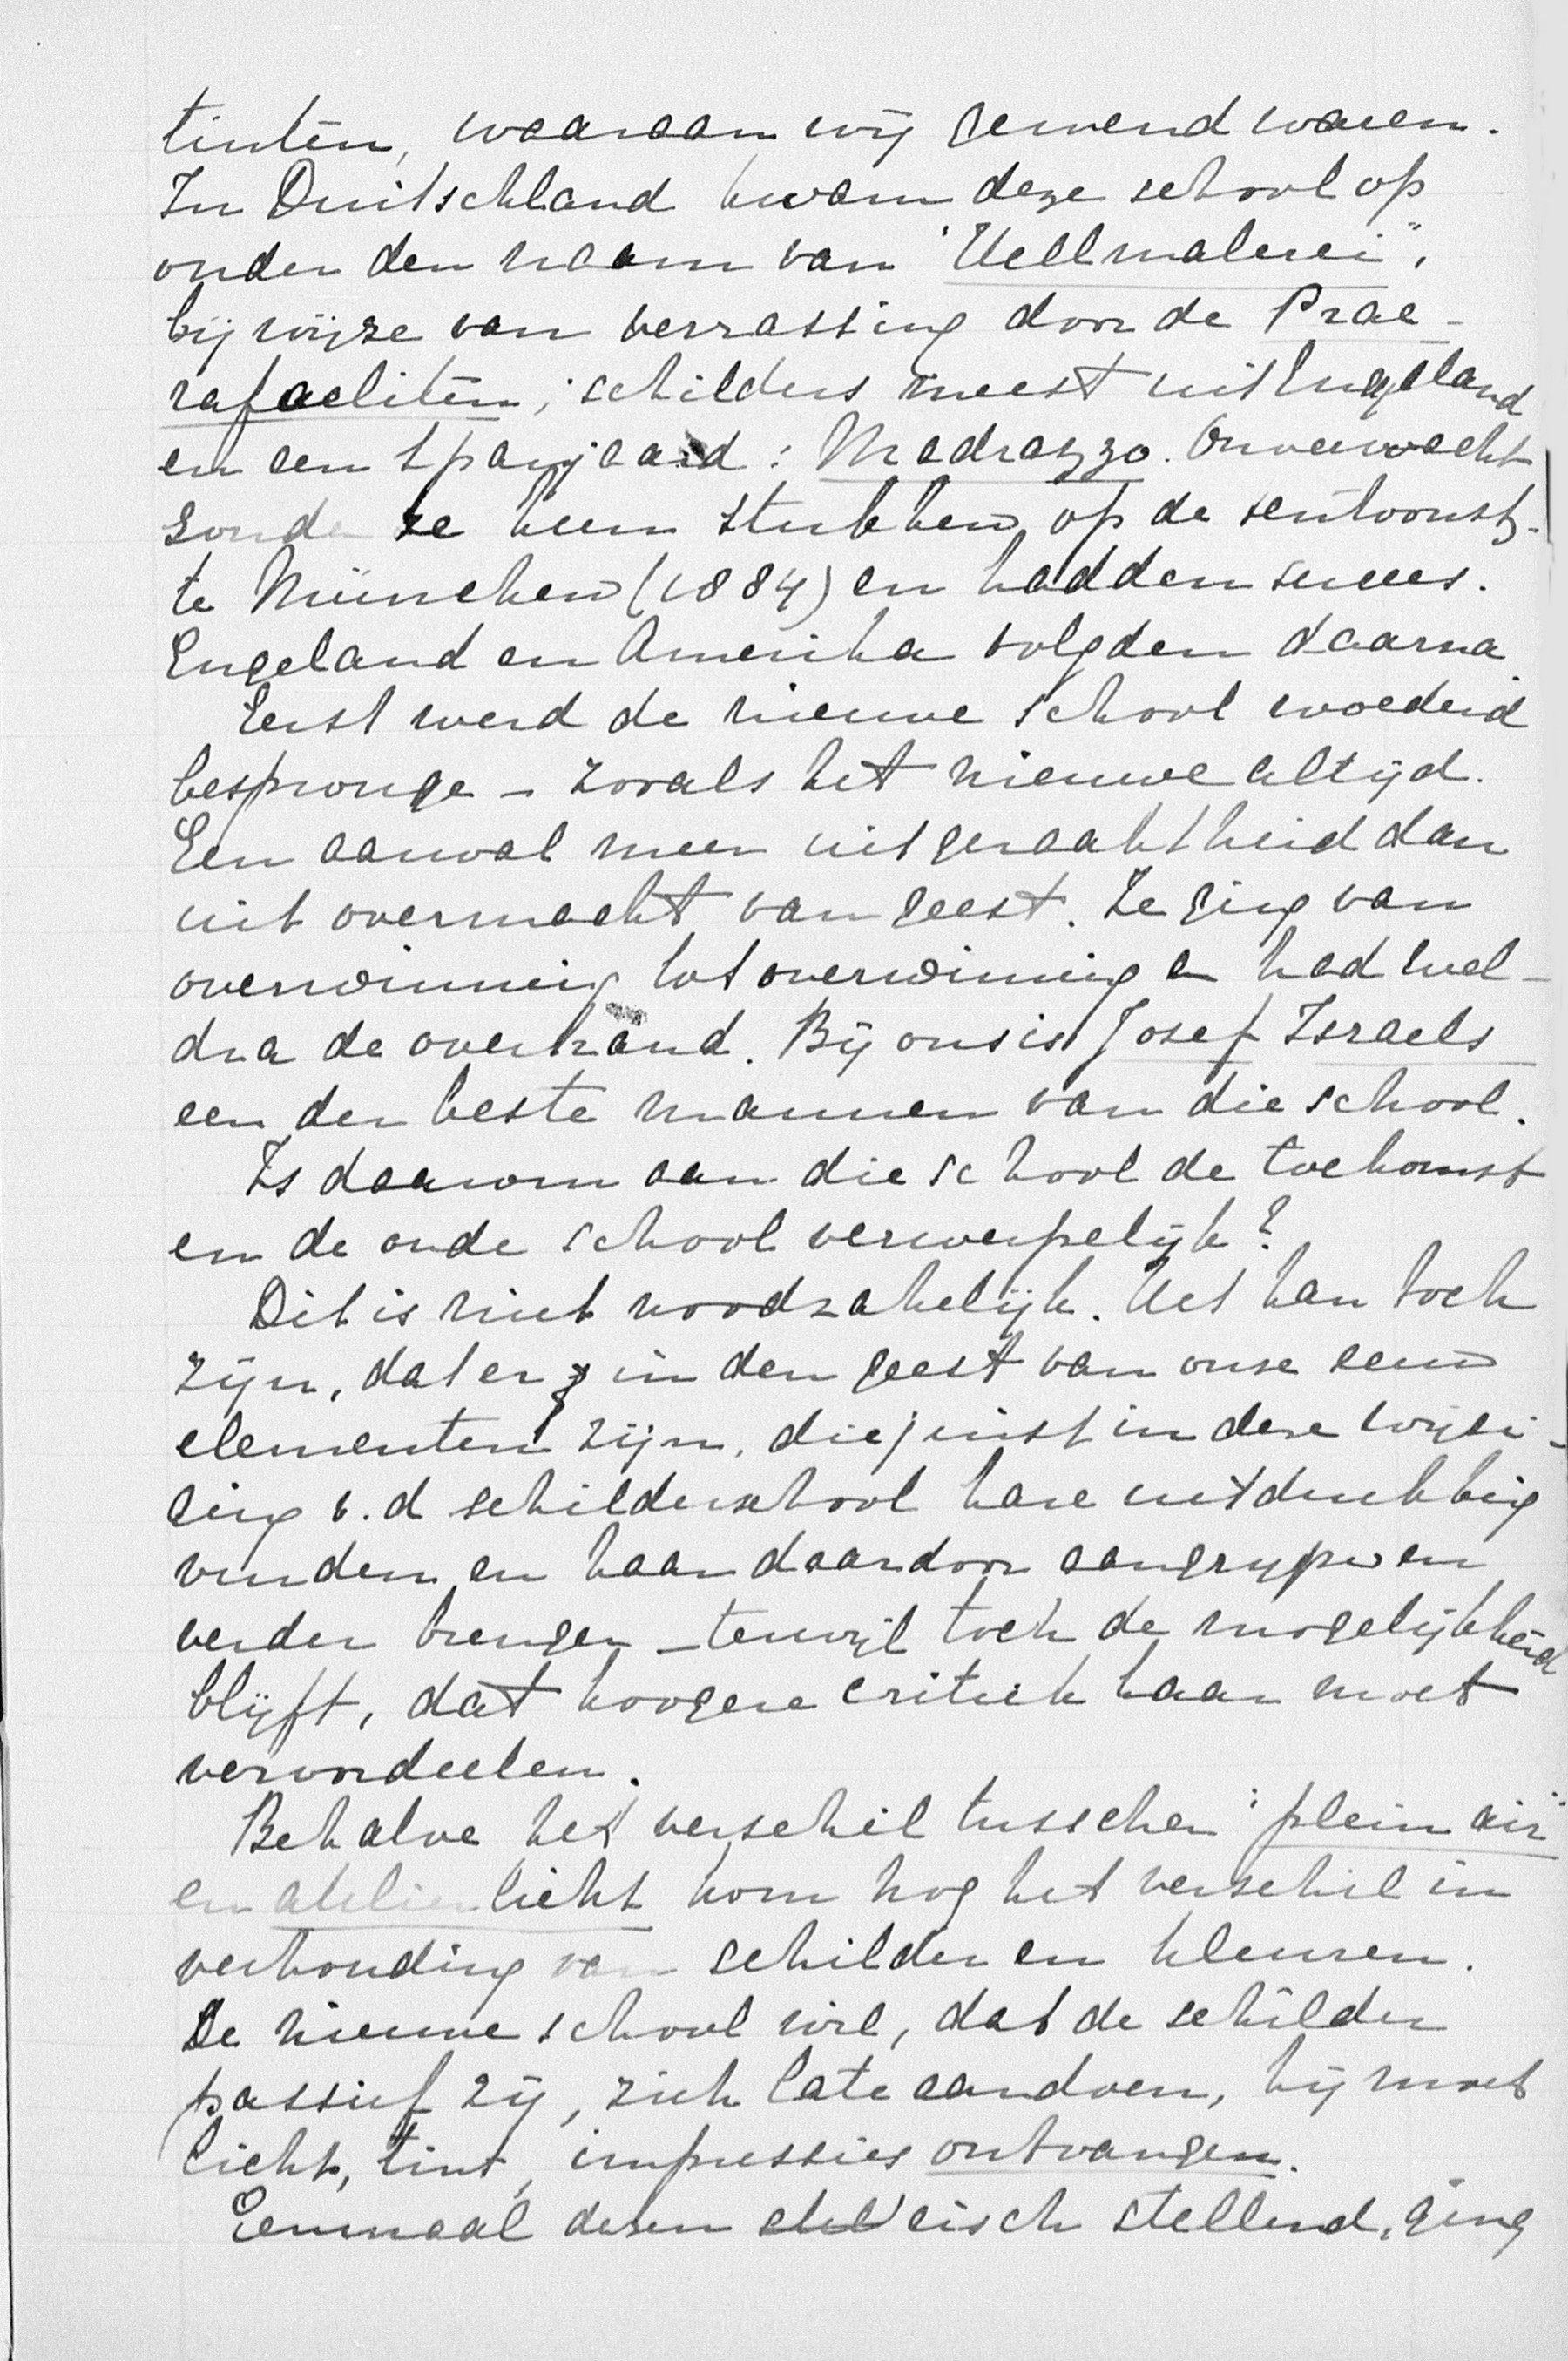 tinten, waaraan wij gewend waren.
In Duitschland kwam deze school op
onder den naam van "Hellmalerei",
bij wijze van verrassing door de Prae-
rafaeliten; schilders meest uit Engeland
en een Spanjaard: Madrazzo. Onverwacht
zonden ze hun stukken op de tentoonst.
te München (1884) en hadden succes.
Engeland en Amerika volgden daarna
Eerst werd de nieuwe school woedend
bespronge - zooals het nieuwe altijd.
Een aanval meer uit geraaktheid dan
uit overmacht van geest. Ze ging van
overwinning tot overwinning en had wel-
dra de overhand. Bij ons is Josef Israels
een der beste mannen van die school.
Is daarom aan die school de toekomst
en de oude school verwerpelijk?
Dit is niet noodzakelijk. Het kan toch
zijn, dat er in den geest van onze eeuw
elementen zijn, die juist in deze wijzi-
ging v.d schilderschool hare uitdrukking
vinden en haar daardoor aangrijpen en
verder brengen - terwijl toch de mogelijkheid
blijft, dat hoogere critiek haar moet
veroordeelen.
Behalve het verschil tusschen "plein air"
en atelierlicht kom nog het verschil in
verhouding van schilder en kleuren.
De nieuwe school wil, dat de schilder
passief zij, zich late aandoen, hij moet
licht, tint, impressies ontvangen.
Eenmaal dezen eisch stellend, ging